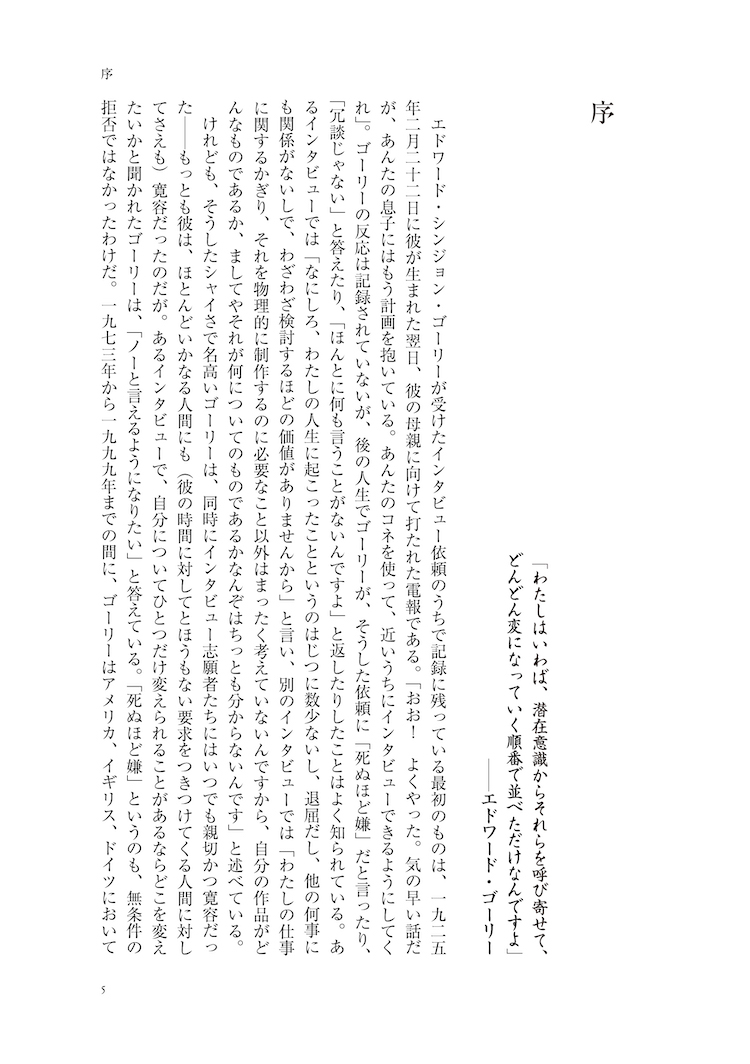 序
序
「わたしはいわば、潜在意識からそれらを呼び寄せて、
どんどん変になっていく順番で並べただけなんですよ」
――エドワード・ゴーリー
エドワード・シンジョン・ゴーリーが受けたインタビュー依頼のうちで記録に残っている最初のものは、一九二五
年二月二十二日に彼が生まれた翌日、彼の母親に向けて打たれた電報である。「おお！　よくやった。気の早い話だ
が、あんたの息子にはもう計画を抱いている。あんたのコネを使って、近いうちにインタビューできるようにしてく
れ」。ゴーリーの反応は記録されていないが、後の人生でゴーリーが、そうした依頼に「死ぬほど嫌」だと言ったり、
「冗談じゃない」と答えたり、「ほんとに何も言うことがないんですよ」と返したりしたことはよく知られている。あ
るインタビューでは「なにしろ、わたしの人生に起こったことというのはじつに数少ないし、退屈だし、他の何事に
も関係がないしで、わざわざ検討するほどの価値がありませんから」と言い、別のインタビューでは「わたしの仕事
に関するかぎり、それを物理的に制作するのに必要なこと以外はまったく考えていないんですから、自分の作品がど
んなものであるか、ましてやそれが何についてのものであるかなんぞはちっとも分からないんです」と述べている。
けれども、そうしたシャイさで名高いゴーリーは、同時にインタビュー志願者たちにはいつでも親切かつ寛容だっ
た――もっとも彼は、ほとんどいかなる人間にも（彼の時間に対してとほうもない要求をつきつけてくる人間に対し
てさえも）寛容だったのだが。あるインタビューで、自分についてひとつだけ変えられることがあるならどこを変え
たいかと聞かれたゴーリーは、「ノーと言えるようになりたい」と答えている。「死ぬほど嫌」というのも、無条件の
拒否ではなかったわけだ。一九七三年から一九九九年までの間に、ゴーリーはアメリカ、イギリス、ドイツにおいて
5